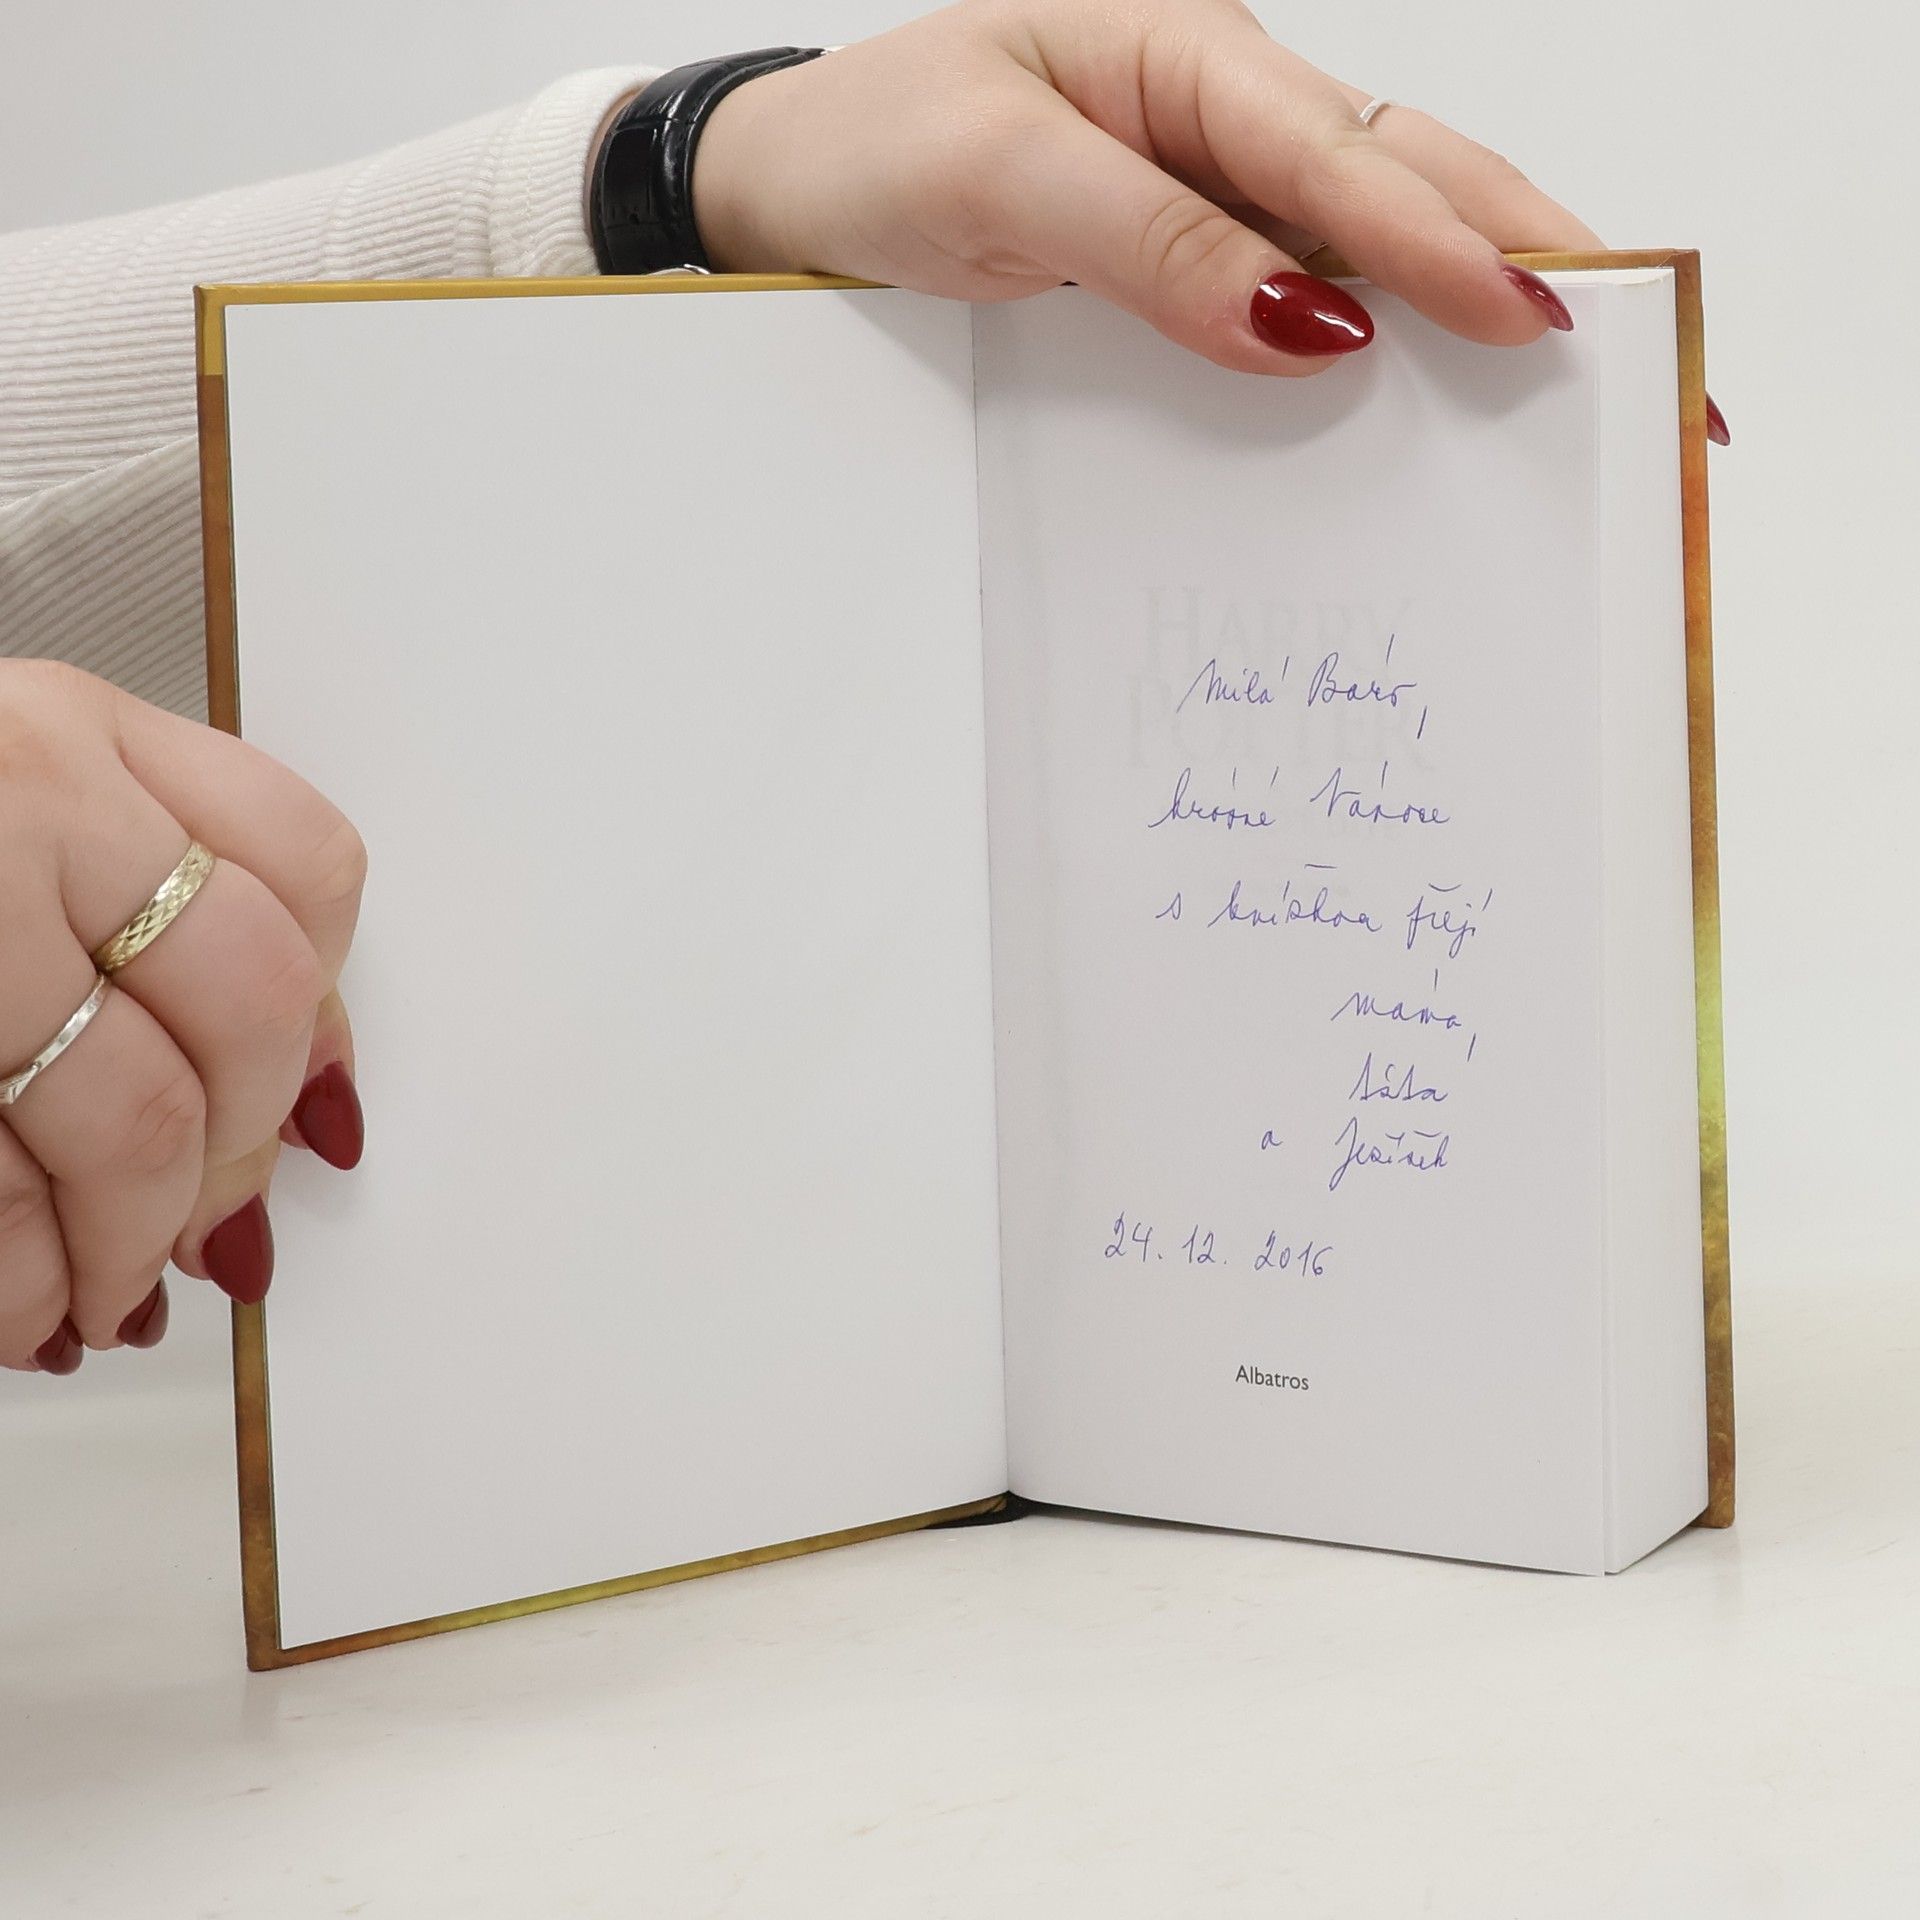 HARRY
POTTER
Milá Báro,
krásné Vánoce
s knížkou přejí
máma,
táta
a Ježíšek
24. 12. 2016
Albatros